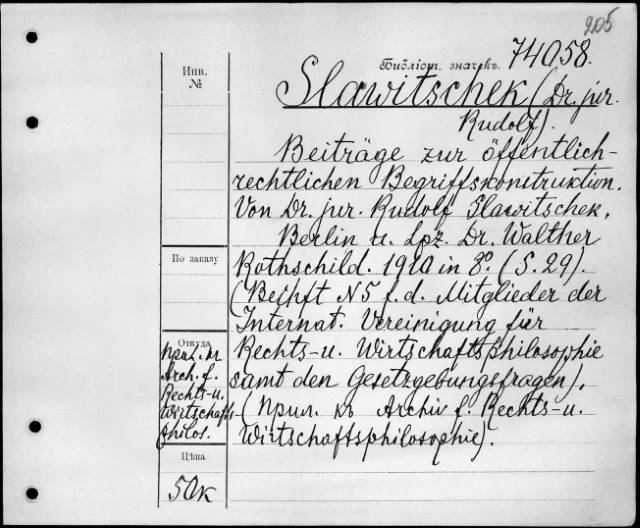 205
Библіот. значекъ. 74058.
Инв.
№
Slawitschek (Dr. jur.
Rudolf).
Beiträge zur öffentlich-
rechtlichen Begriffskonstruktion.
Von Dr. jur. Rudolf Slawitschek.
Berlin u. Lpz. Dr. Walther
По заказу
Rothschild. 1910 in 8º. (S. 29).
(Beihft N5 f. d. Mitglieder der
Internat. Vereinigung für
Откуда
Rechts- u. Wirtschaftsphilosophie
samt den Gesetzgebungsfragen).
(Прил. къ Archiv f. Rechts- u.
Wirtschaftsphilosophie).
Прил. къ
Arch. f.
Rechts- u.
Wirtschafts-
philos.
Цѣна
50к